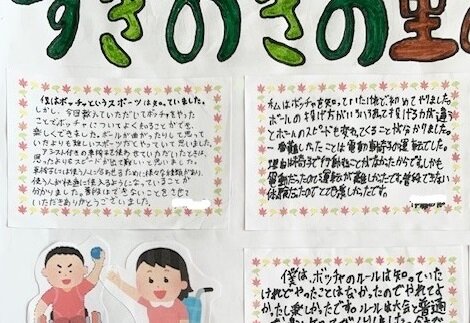 すぎのきの里
僕はボッチャというスポーツは知っていました。
しかし、今回教えていただいてボッチャをやった
ことでボッチャについてよくわかることができ、
楽しくできました。ボールが曲がったりして思って
いたよりも難しいスポーツだとやっていて思いました。
アシスト付きの車椅子を使わせていただいたときは、
思ったよりもスピードが出て難しいと思いました。
車椅子には使う人に合わせるために、様々な種類があり、
使う人が快適に使えるようになっていることが
分かりました。普段はできないことをさせて
いただきありがとうございました。
私はボッチャを知っていたけれど初めてやりました。
ボールの投げ方がいろいろあって投げる方が違う
とボールのスピードも変わってくることが分かりました。
一番難しかったことは電動車椅子の運転でした。
理由は
電動だったので運転が難しかったです。普段できない
体験だったのでとても楽しかったです。
僕は、ボッチャのルールは知っていた
けれどやったことはなかったのでやれてよ
かったし楽しかったです。ルールは大会と普通